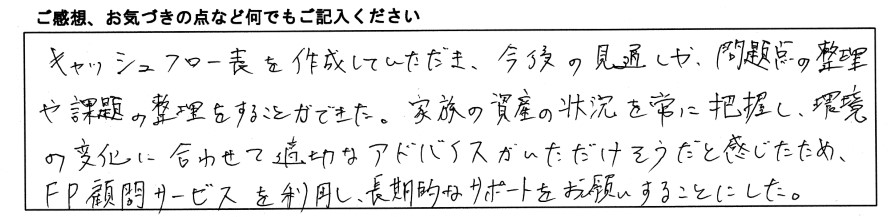 ご感想、お気づきの点など何でもご記入ください
キャッシュフロー表を作成していただき、今後の見通しや、問題点の整理
や課題の整理をすることができた。家族の資産の状況を常に把握し、環境
の変化に合わせて適切なアドバイスがいただけそうだと感じたため、
FP顧問サービスを利用し、長期的なサポートをお願いすることにした。